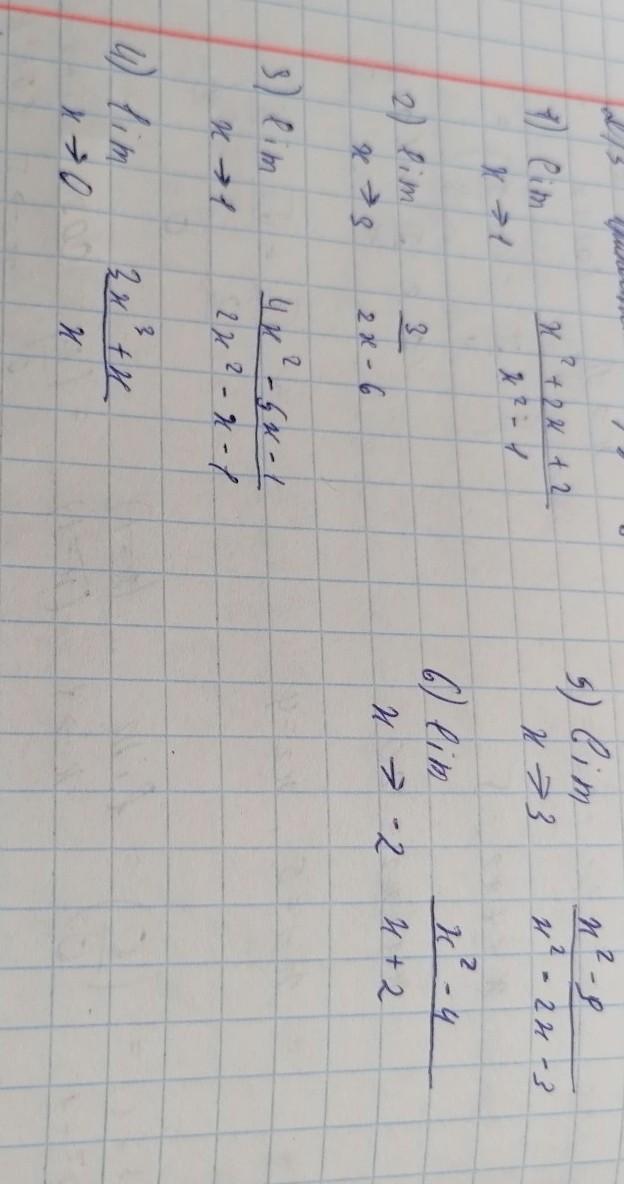 Д/з
1) lim x→1 (x² + 2x + 2)/(x² - 1)
2) lim x→3 3/(2x - 6)
3) lim x→1 (4x² - 5x - 1)/(2x² - x - 1)
4) lim x→0 (3x³ + x)/x
5) lim x→3 (x² - 9)/(x² - 2x - 3)
6) lim x→ -2 (x² - 4)/(x + 2)